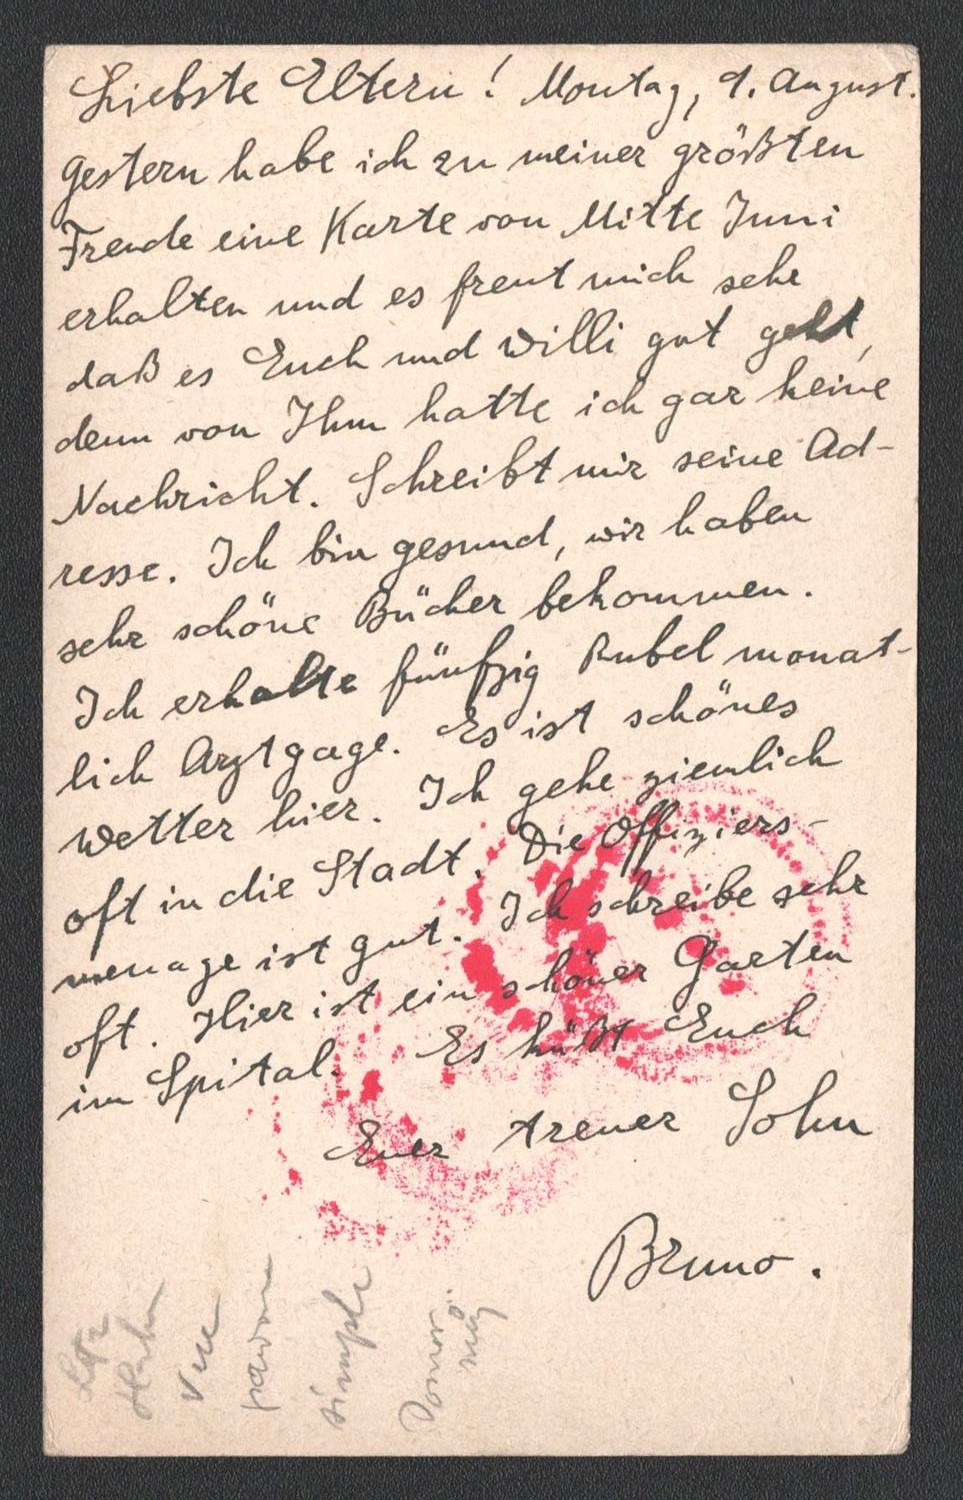 Liebste Eltern! Montag, 9. August.
Gestern habe ich zu meiner größten
Freude eine Karte von Mitte Juni
erhalten und es freut mich sehr
daß es Euch und Willi gut geht,
denn von Ihm hatte ich gar keine
Nachricht. Schreibt mir seine Ad-
resse. Ich bin gesund, wir haben
sehr schöne Bücher bekommen.
Ich erhalte fünfzig Rubel monat-
lich Arztgage. Es ist schönes
Wetter hier. Ich gehe ziemlich
oft in die Stadt. Die Offiziers-
menage ist gut. Ich schreibe sehr
oft. Hier ist ein schöner Garten
im Spital. Es küßt Euch
Euer treuer Sohn
Bruno.
simple